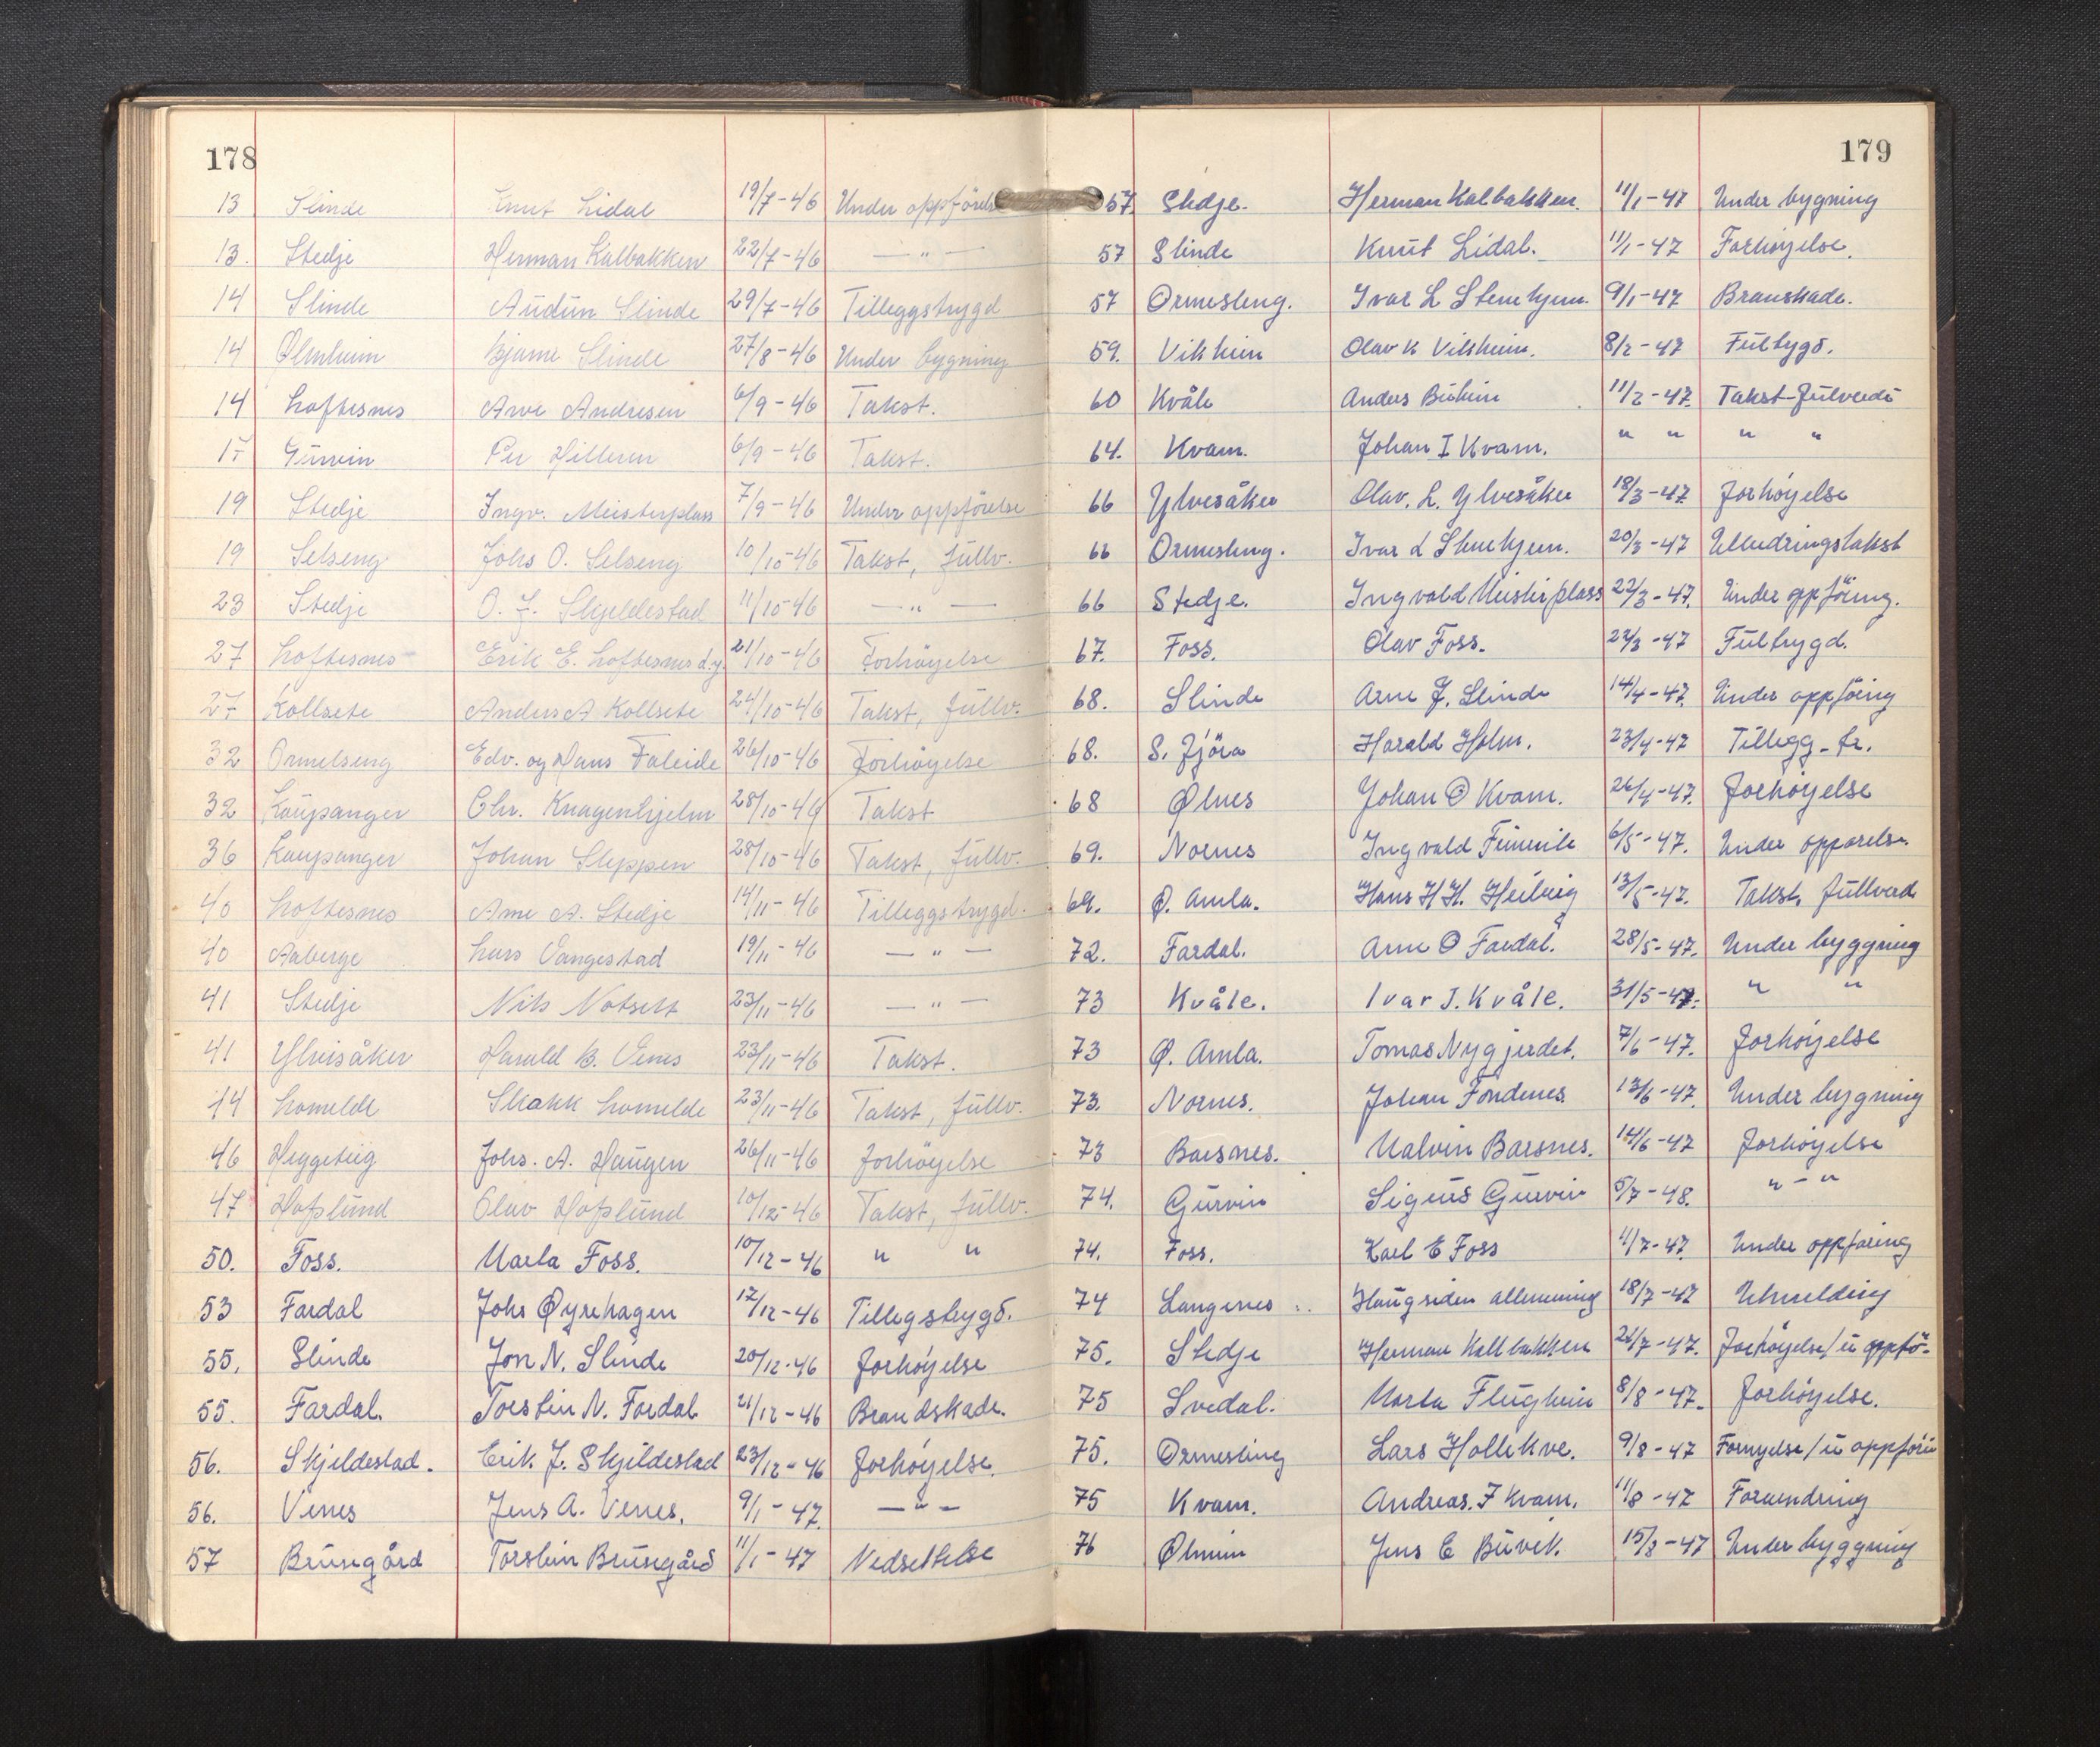 178
13 Slinde Knut Lidal 19/7-46 Under oppförelse
13. Stedje Herman Kalbakken 22/7-46 — " —
14 Slinde Audün Slinde 29/7-46 Tilleggsbygd
14 Ølmheim Bjarne Slinde 27/8-46 Under bygning
14 Loftesnes Arve Andresen 6/9-46 Takst.
17 Gürvin Per Hilleren 6/9-46 Takst.
19 Stedje Ingv. Meisterplass 7/9-46 Under oppförelse
19 Selseng Johs O. Selseng 10/10-46 Takst, füllv.
23 Stedje O. J. Skjeldestad 11/10-46 — " —
27 Loftesnes Erik E. Loftesnes d.y. 21/10-46 Forhöyelse
27 Kollsete Anders A Kollsete 24/10-46 Takst, füllv.
32 Ormelseng Edv. og Hans Faleide 26/10-46 Forhöyelse
32 Kaupanger Chr. Knagenhjelm 28/10-46 Takst
36 Kaupanger Johan Sleppen 28/10-46 Takst, füllv.
40 Loftesnes Arne A. Stedje 14/11-46 Tilleggsbygd.
40 Aaberge Lars Vangestad 19/11-46 — " —
41 Stedje Nils Notseth 23/11-46 — " —
41 Ylvisåker Harald B. Venes 23/11-46 Takst.
44 Lomelde Skakk Lomelde 23/11-46 Takst, füllv.
46 Heggeteig Johs. A. Haugen 26/11-46 forhöyelse
47 Hofslünd Olav Hofslünd 10/12-46 Takst, füllv.
50. Foss. Marta Foss. 10/12-46 " "
53 Fardal Johs Øyrehagen 17/12-46 Tillegsbygd.
55. Slinde Jon N. Slinde 20/12-46 forhöyelse
55. Fardal. Torstein N. Fardal 21/12-46 Brandskade.
56. Skjeldestad. Erik J. Skjeldestad 23/12-46 forhöyelse.
56. Venes Jens A. Venes. 9/1-47. — " —
57 Brünsgård Torstein Brünsgård 11/1-47 Nedsettelse
179
57 Stedje. Herman Kalbakken. 11/1-47 Under bygning
57 Slinde Knut Lidal. 11/1-47 Forhöyelse.
57 Ormesleng. Ivar L Stenehjem. 9/1-47 Branskade.
59. Vikheim Olav K Vikheim. 8/2-47 Fülbygd.
60 Kvåle Anders Büheim 11/2-47. Takst-fülverdi
64. Kvam. Johan I Kvam. " " " "
66 Ylvesåker Olav. L. Ylvesåker 18/3-47 forhöyelse
66 Ormesleng. Ivar L Stenehjem. 20/3-47 Utmedringstakst
66 Stedje. Ingvald Meisterplass 22/3-47. Under oppföring.
67. Foss. Olav Foss. 22/3-47 Fülbygd.
68. Slinde Arne J. Slinde 14/4-47. Under oppföring
68. S. Fjöra Harald Holm. 23/4-47 Tillegg-br.
68 Ølnes Johan O Kvam. 26/4-47. forhöyelse
69. Nornes Ingvald Fimreite 6/5-47. Under opparelse.
69. Ø. Amla. Hans H H. Heiberg 13/5-47. Takst, füllverd
72. Fardal. Arne O Fardal. 28/5-47. Under byggning
73 Kvåle. Ivar J. Kvåle. 31/5-47. " "
73 Ø. Amla. Tomas Nygjerdet. 7/6-47. forhöyelse
73. Nornes. Johan Fondenes. 13/6-47. Under bygning
73 Barsnes. Malvin Barsnes. 14/6-47 forhöyelse
74. Gürvin Sigürs Gürvin 5/7-48. " - "
74. Foss. Karl E Foss 11/7-47 Under oppföring
74 Langenes Haugsiden allmenning 18/7-47 Utmelding
75. Stedje Herman Kallbakken 21/7-47. Forhöyelse/ü oppfö-
75 Svedal. Marta Flügheim 8/8-47. forhöyelse.
75. Ormesleng Lars Hollekve. 9/8-47 Fornyelse/ü oppförin
75 Kvam. Andreas. J Kvam. 11/8-47 Forandring
76 Ølmein Jens E Büvik. 15/8-47 Under byggning